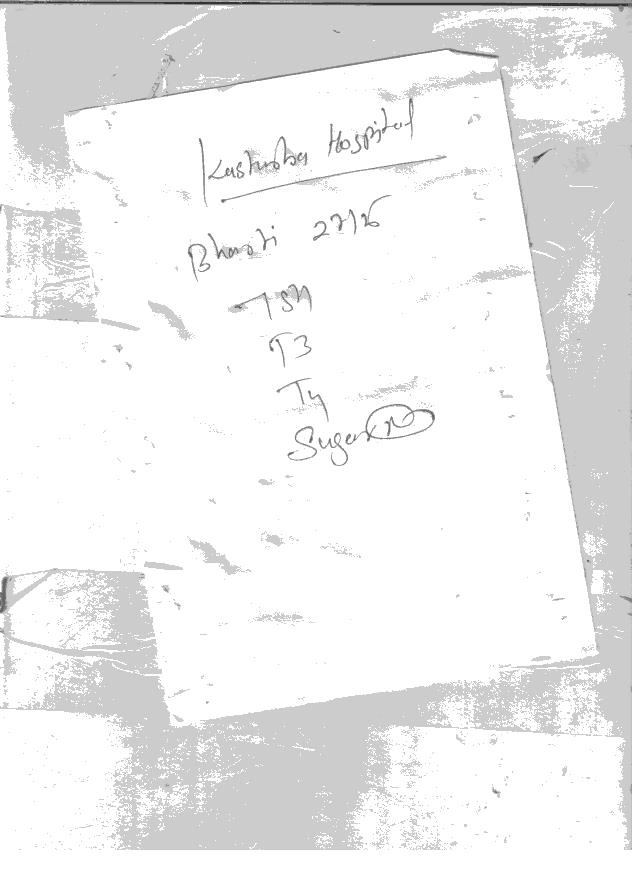 Kasturba Hospital
Bharti 27/F
TSH
T3
T4
Sugar (R)